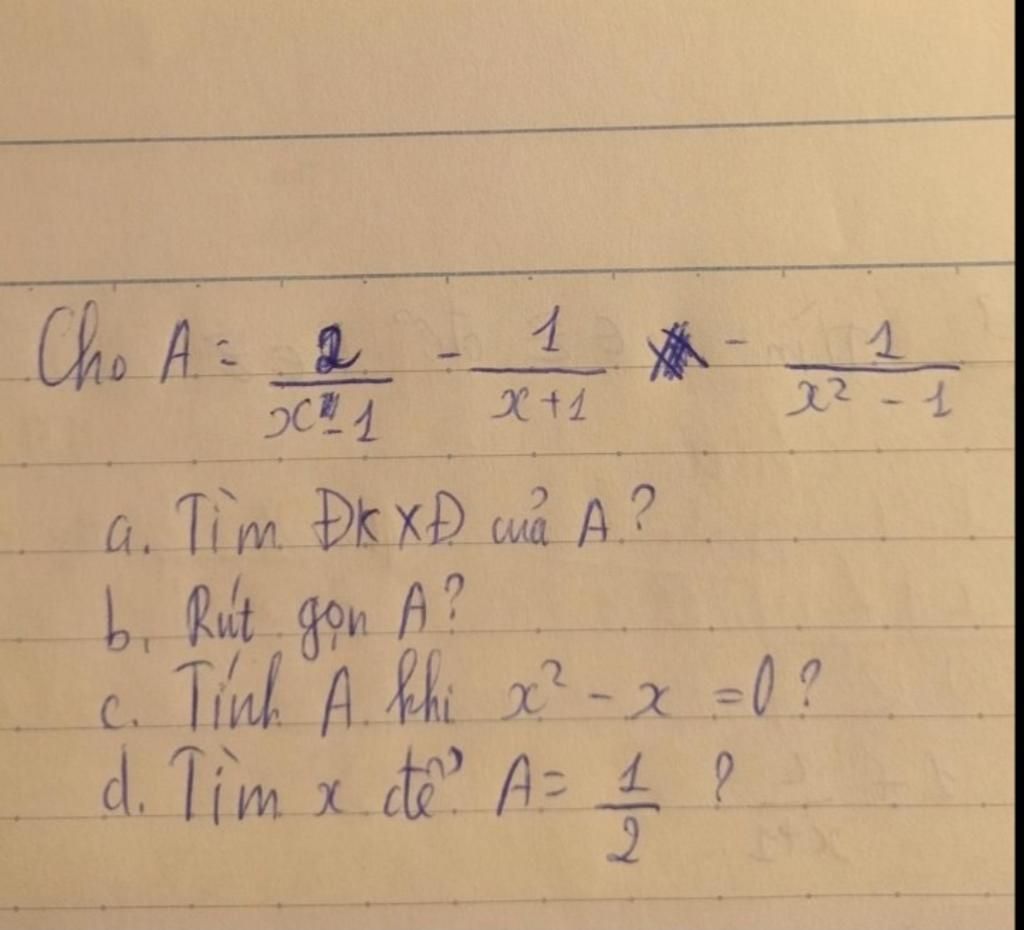 Cho A = 2/(x - 1) - 1/(x + 1) - 1/(x² - 1)
a. Tìm ĐKXĐ của A?
b. Rút gọn A?
c. Tính A khi x² - x = 0?
d. Tìm x để A = 1/2 ?